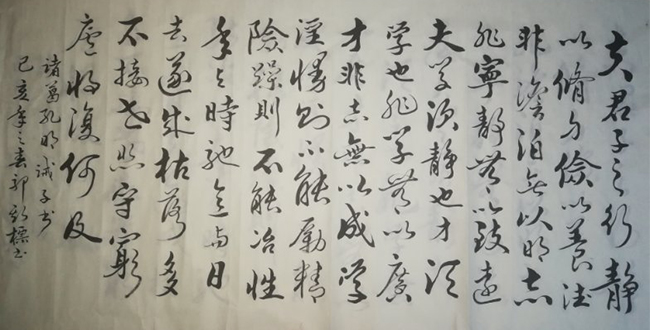 夫君子之行静
以脩身儉以養德
非澹泊無以明志
非寧静無以致遠
夫学須静也才須
学也非学無以廣
才非志無以成学
淫慢則不能勵精
險躁則不能冶性
年与時馳意与日
去遂成枯落多
不接世悲守窮
廬将復何及
諸葛孔明诫子书
己亥年之春郭標书